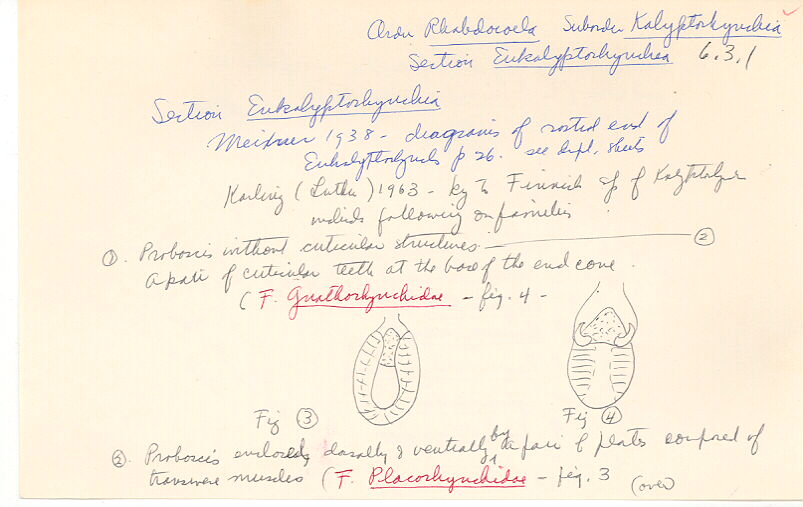 Order Rhabdocoela Suborder Kalyptorhynchia
Section Eukalyptorhynchia 6.3.1
Section Eukalyptorhynchia
Meixner 1938 - diagrams of rostral end of
p 26. see dupl. sheets
Karling (Luther) 1963 - key to Finnish sp of
following on families
①. Proboscis without cuticular structures ②
A pair of cuticular teeth at the base of the end cone.
(F. Gnathorhynchidae - fig. 4 -
Fig ③
Fig ④
②. Proboscis enclosed, dorsally & ventrally by a pair of plates composed of
transverse muscles (F. Placorhynchidae - fig. 3 (over)